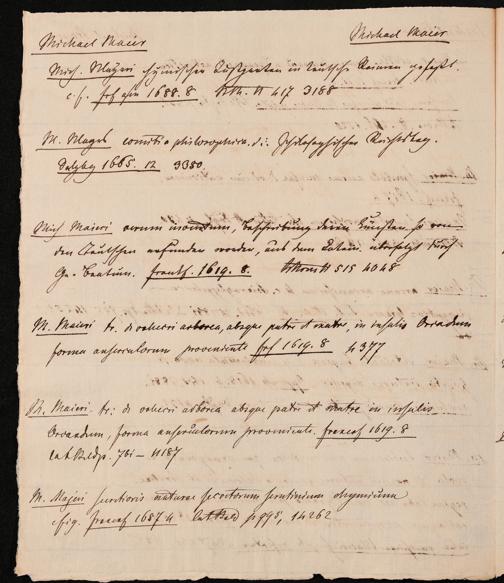 Michael Maier Michael Maier
Mich. Mayeri chymischer Lustgarten in teutsche Reimen gefasst.
c. f. 1688. 8 417 3188
M. Mayeri comitia philosophica. d. i. Philosophischer Reichstag.
1665. 12 3350
Mich Maieri verum inventum, Beschreibung deren Künsten so von
den Teutschen erfunden worden, aus dem Latein. übersetzt durch
Ge. Beatum. Frankf. 1619. 8. 515 4048
M. Maieri tr. de volucri arborea, absque patre et matre, in insulis Orcadum
forma anserculorum proveniente frf 1619. 8 4377
M. Maieri. tr: de volucri arborea absque patre et matre in insulis
Orcadum, forma anserculorum proveniente. francof 1619. 8
1187
M. Mayeri secretioris naturae secretorum scrutinium chymicum
c. fig. francof 1687 4 p 995, 14262